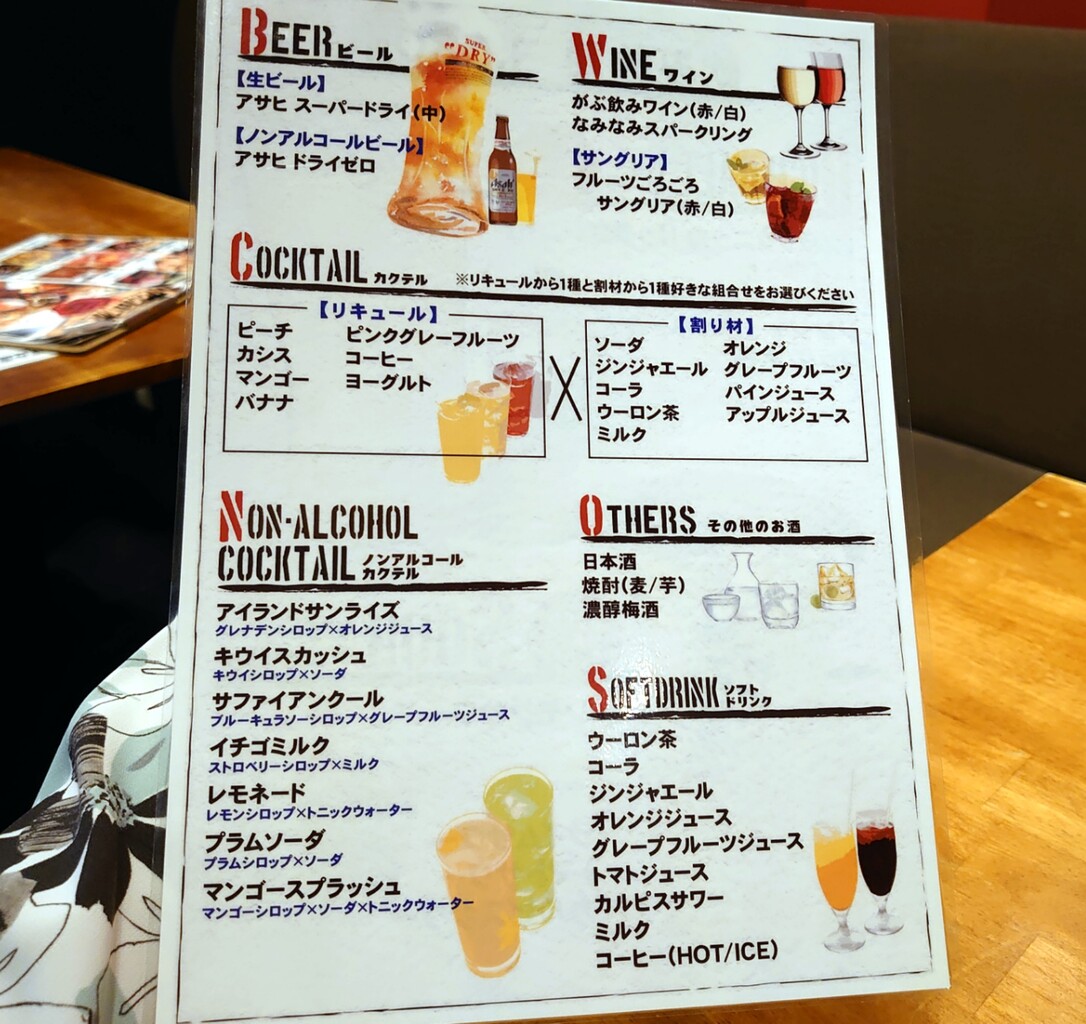 BEER ビール
【生ビール】
アサヒ スーパードライ(中)
【ノンアルコールビール】
アサヒ ドライゼロ
SUPER
"DRY"
Asahi
WINE ワイン
がぶ飲みワイン(赤/白)
なみなみスパークリング
【サングリア】
フルーツごろごろ
サングリア(赤/白)
COCKTAIL カクテル ※リキュールから1種と割材から1種好きな組合せをお選びください
【リキュール】
ピーチ
カシス
マンゴー
バナナ
ピンクグレーフルーツ
コーヒー
ヨーグルト
X
【割り材】
ソーダ
ジンジャエール
コーラ
ウーロン茶
ミルク
オレンジ
グレープフルーツ
パインジュース
アップルジュース
NON-ALCOHOL
COCKTAIL ノンアルコール
カクテル
アイランドサンライズ
グレナデンシロップ×オレンジジュース
キウイスカッシュ
キウイシロップ×ソーダ
サファイアンクール
ブルーキュラソーシロップ×グレープフルーツジュース
イチゴミルク
ストロベリーシロップ×ミルク
レモネード
レモンシロップ×トニックウォーター
プラムソーダ
プラムシロップ×ソーダ
マンゴースプラッシュ
マンゴーシロップ×ソーダ×トニックウォーター
OTHERS その他のお酒
日本酒
焼酎(麦/芋)
濃醇梅酒
SOFTDRINK ソフト
ドリンク
ウーロン茶
コーラ
ジンジャエール
オレンジジュース
グレープフルーツジュース
トマトジュース
カルピスサワー
ミルク
コーヒー(HOT/ICE)